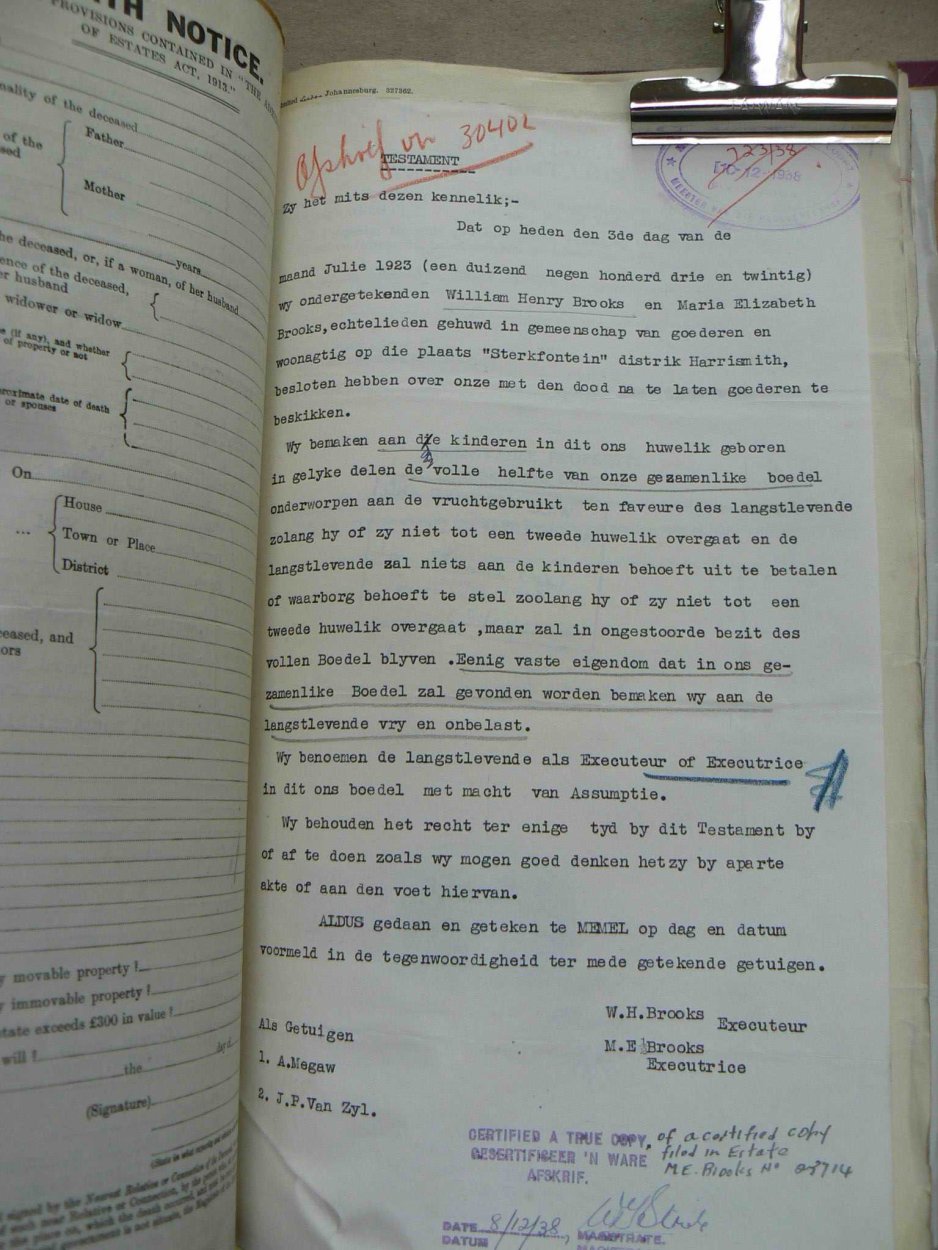 TH NOTICE.
PROVISIONS CONTAINED IN "THE
OF ESTATES ACT, 1913."
nality of the deceased
of the
sed
Father
Mother
he deceased, or, if a woman, of her husband
years
ence of the deceased,
er husband
widower or widow
e (if any), and whether
of property or not
roximate date of death
or spouses
On
House
...
Town or Place
District
ceased, and
ors
y movable property ?
y immovable property ?
state exceeds £300 in value ?
will ?
the
day of
(Signature)
signed by the Nearest Relative or Connection of the
Limited London Johannesburg. 327362.
TAIWAN
Afskrif vir 30402
TESTAMENT
723/38
10-12-1938
Zy het mits dezen kennelik;-
Dat op heden den 3de dag van de
maand Julie 1923 (een duizend negen honderd drie en twintig)
wy ondergetekenden William Henry Brooks en Maria Elizabeth
Brooks,echtelieden gehuwd in gemeenschap van goederen en
woonagtig op die plaats "Sterkfontein" distrik Harrismith,
besloten hebben over onze met den dood na te laten goederen te
beskikken.
Wy bemaken aan die kinderen in dit ons huwelik geboren
in gelyke delen de volle helfte van onze gezamenlike boedel
onderworpen aan de vruchtgebruikt ten faveure des langstlevende
zolang hy of zy niet tot een tweede huwelik overgaat en de
langstlevende zal niets aan de kinderen behoeft uit te betalen
of waarborg behoeft te stel zoolang hy of zy niet tot een
tweede huwelik overgaat ,maar zal in ongestoorde bezit des
vollen Boedel blyven .Eenig vaste eigendom dat in ons ge-
zamenlike Boedel zal gevonden worden bemaken wy aan de
langstlevende vry en onbelast.
Wy benoemen de langstlevende als Executeur of Executrice
in dit ons boedel met macht van Assumptie.
Wy behouden het recht ter enige tyd by dit Testament by
of af te doen zoals wy mogen goed denken hetzy by aparte
akte of aan den voet hiervan.
ALDUS gedaan en geteken te MEMEL op dag en datum
voormeld in de tegenwoordigheid ter mede getekende getuigen.
W.H.Brooks
Executeur
Als Getuigen
M.E Brooks
Executrice
1. A.Megaw
2. J.P.Van Zyl.
CERTIFIED A TRUE COPY, of a certified copy
GESERTIFISEER 'N WARE filed in Estate
AFSKRIF. M.E. Brooks No
DATE 8/12/38, MAGISTRATE.
DATUM